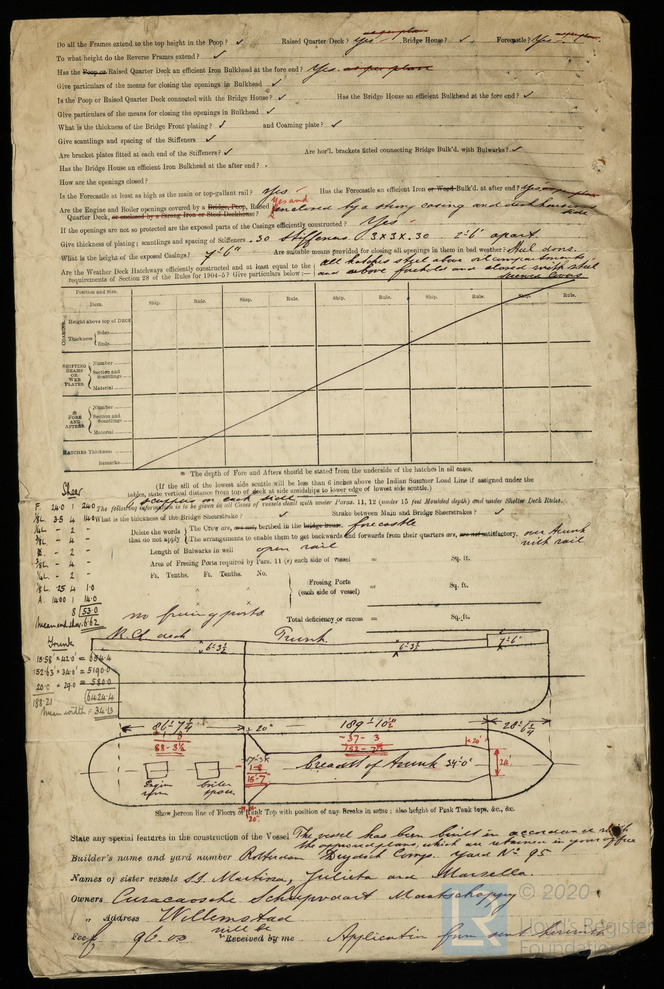 Do all the Frames extend to the top height in the Poop? ✓ Raised Quarter Deck? Yes as per plan Bridge House? ✓ Forecastle? Yes as per plan
To what height do the Reverse Frames extend? ✓
Has the Poop or Raised Quarter Deck an efficient Iron Bulkhead at the fore end? Yes as per plan
Give particulars of the means for closing the openings in Bulkhead ✓
Is the Poop or Raised Quarter Deck connected with the Bridge House? ✓ Has the Bridge House an efficient Bulkhead at the fore end? ✓
Give particulars of the means for closing the openings in Bulkhead ✓
What is the thickness of the Bridge Front plating? ✓ and Coaming plate? ✓
Give scantlings and spacing of the Stiffeners ✓
Are bracket plates fitted at each end of the Stiffeners? ✓ Are hor'l. brackets fitted connecting Bridge Bulk'd. with Bulwarks? ✓
Has the Bridge House an efficient Iron Bulkhead at the after end?
How are the openings closed?
Is the Forecastle at least as high as the main or top-gallant rail? Yes Has the Forecastle an efficient Iron or Wood Bulk'd. at after end? Yes as per plan
Are the Engine and Boiler openings covered by a Bridge, Poop, Raised Quarter Deck, or enclosed by a Strong Iron or Steel Deckhouse? Yes and enclosed by a strong casing and deckhouse
side
If the openings are not so protected are the exposed parts of the Casings efficiently constructed? Yes
Give thickness of plating; scantlings and spacing of Stiffeners .30 Stiffeners 3 x 3 x .30 2'-6" apart
What is the height of the exposed Casings? 7'-6" Are suitable means provided for closing all openings in them in bad weather? Steel doors.
Are the Weather Deck Hatchways efficiently constructed and at least equal to the requirements of Section 28 of the Rules for 1904-5? Give particulars below:— All hatches steel above oil compartments
and above foreholds and closed with steel
covers
Position and Size.
Item. Ship. Rule. Ship. Rule. Ship. Rule. Ship. Rule.
COAMING Height above top of DECK
Thickness { Sides
Ends
SHIFTING BEAMS OR WEB PLATES { Number
Section and Scantlings
Material
* FORE AND AFTERS { Number
Section and Scantlings
Material
HATCHES Thickness
Remarks
* The depth of Fore and Afters should be stated from the underside of the hatches in all cases.
(If the sill of the lowest side scuttle will be less than 6 inches above the Indian Summer Load Line if assigned under the
tables, state vertical distance from top of deck at side amidships to lower edge of lowest side scuttle.)
scupper on each side
The following information is to be given in all Cases of Vessels dealt with under Paras. 11, 12 (under 15 feet Moulded depth) and under Shelter Deck Rules.
What is the thickness of the Bridge Sheerstrake? ✓ Strake between Main and Bridge Sheerstrakes? ✓
Delete the words that do not apply { The Crew are, are not, berthed in the bridge house. forecastle
The arrangements to enable them to get backwards and forwards from their quarters are, are not satisfactory. over trunk
with rail
Length of Bulwarks in well open rail
Area of Freeing Ports required by Para. 11 (e) each side of vessel = Sq. ft.
Ft. Tenths. Ft. Tenths. No.
Freeing Ports (each side of vessel) = Sq. ft.
no freeing ports
Total deficiency or excess = Sq. ft.
Sheer
F. 24.0 1 24.0
⅛L 3.5 4 14.0
¼L - 2 -
⅜L - 4 -
- 2 -
⅝L - 4 -
¼L - 2 -
⅛L .25 4 1.0
A. 14.00 1 14.0
8 53.0
mean sheer 6.62
Trunk
13.58 x 42.0 = 654.4
152.63 x 34.0 = 5190.0
20.0 x 29.0 = 580.0
188.21 6424.4
Mean width = 34.13
R.Q. deck Trunk 6'-3½ 6'-3½ 7'-6"
86'-7¼ 20" 189'-10½" 28'-1½
1 8
88-3¼
37-3
152-7½
1-8
15-7
20'
24'
Engine room Boiler space
Breadth of trunk 34'-0"
20"
Show hereon line of Floors or Tank Top with position of any Breaks in same; also height of Peak Tank tops, &c., &c.
State any special features in the construction of the Vessel The vessel has been built in accordance with
the approved plans, which are retained in your office
Builder's name and yard number Rotterdam Drydock Compy. Yard No 95
Names of sister vessels S.S. Martinza, Julieta and Marsella.
Owners Curacaosche Scheepvaart Maatschappy
" Address Willemstad
Fee £ 96.00 will be Received by me Application form sent herewith
© 2020
LR
Lloyd's Register
Foundation